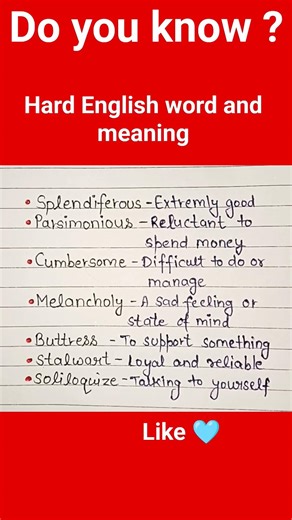 Do you know ?
Hard English word and
meaning
• Splendiferous - Extremly good
• Parsimonious - Reluctant to
spend money
• Cumbersome - Difficult to do or
manage
• Melancholy - A sad feeling or
state of mind
• Buttress - To support something
• Stalwart - Loyal and reliable
• Soliloquize - Talking to yourself
Like 🩵